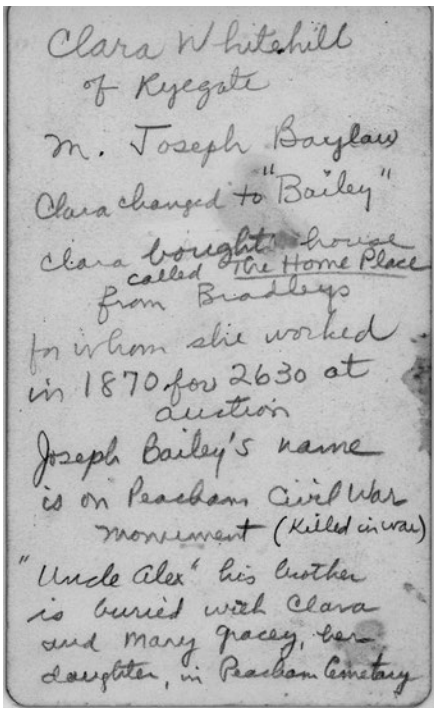 Clara Whitehill
of Ryegate
m. Joseph Baylaw
Clara changed to "Bailey"
Clara bought house
called The Home Place
from Bradleys
for whom she worked
in 1870 for 2630 at
auction
Joseph Bailey's name
is on Peacham Civil War
monument (Killed in war)
"Uncle Alex" his brother
is buried with Clara
and Mary Gracey, her
daughter, in Peacham Cemetary